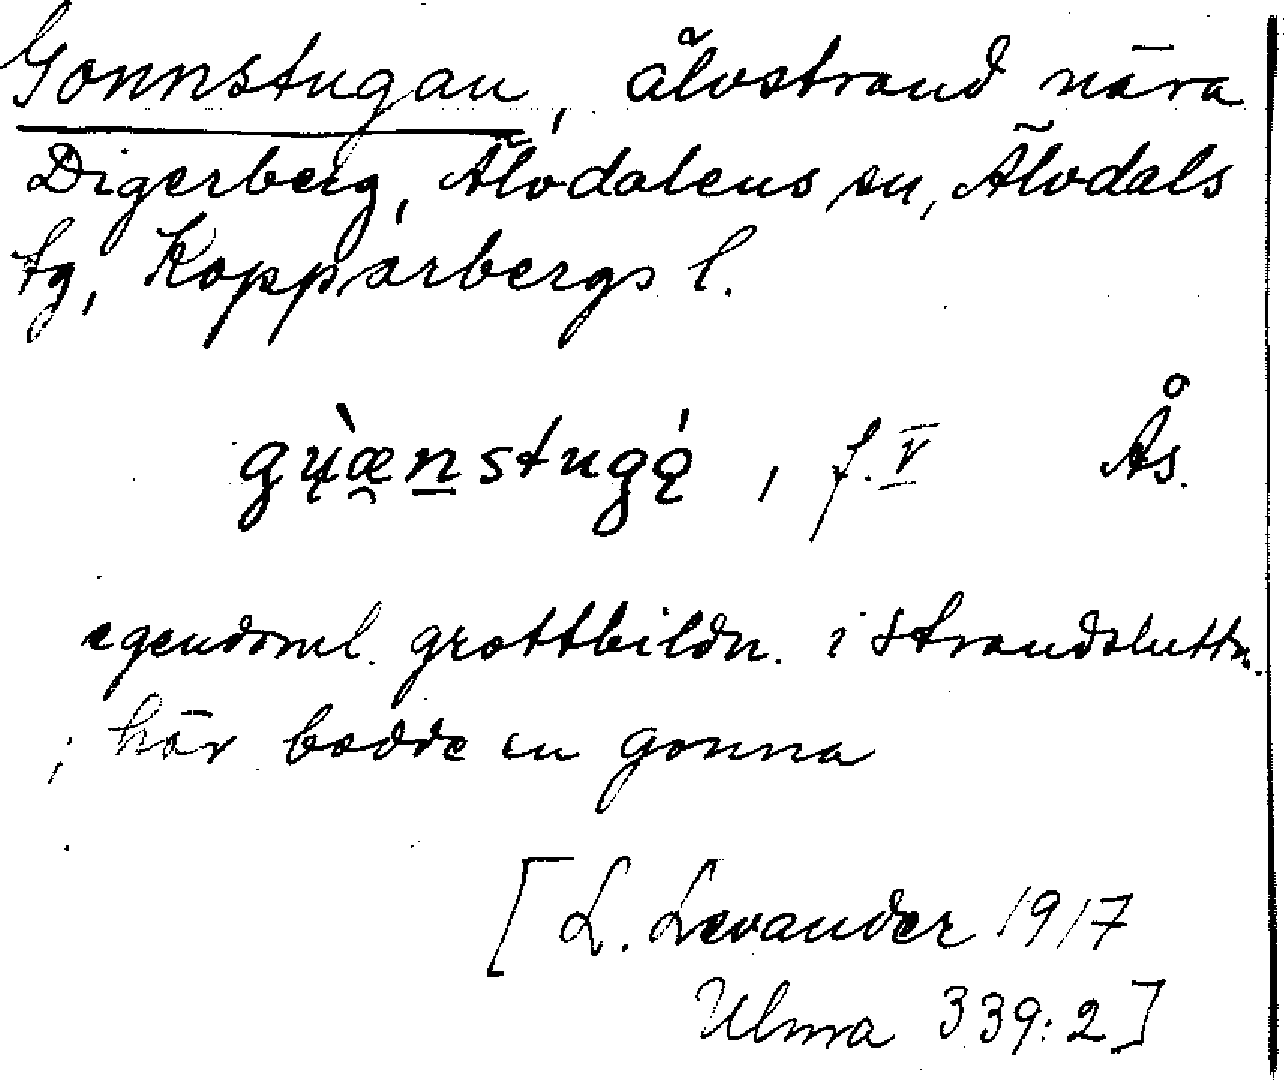 Gonnstugan, älvstrand nära
Digerberg, Älvdalens sn, Älvdals
tg, Kopparbergs l.
gų̀æ̯n̲stugą́, f. V Ås.
egendoml. grottbildn. i strandsluttn.
; här bodde en gonna
[L. Levander 1917
Ulma 339:2]